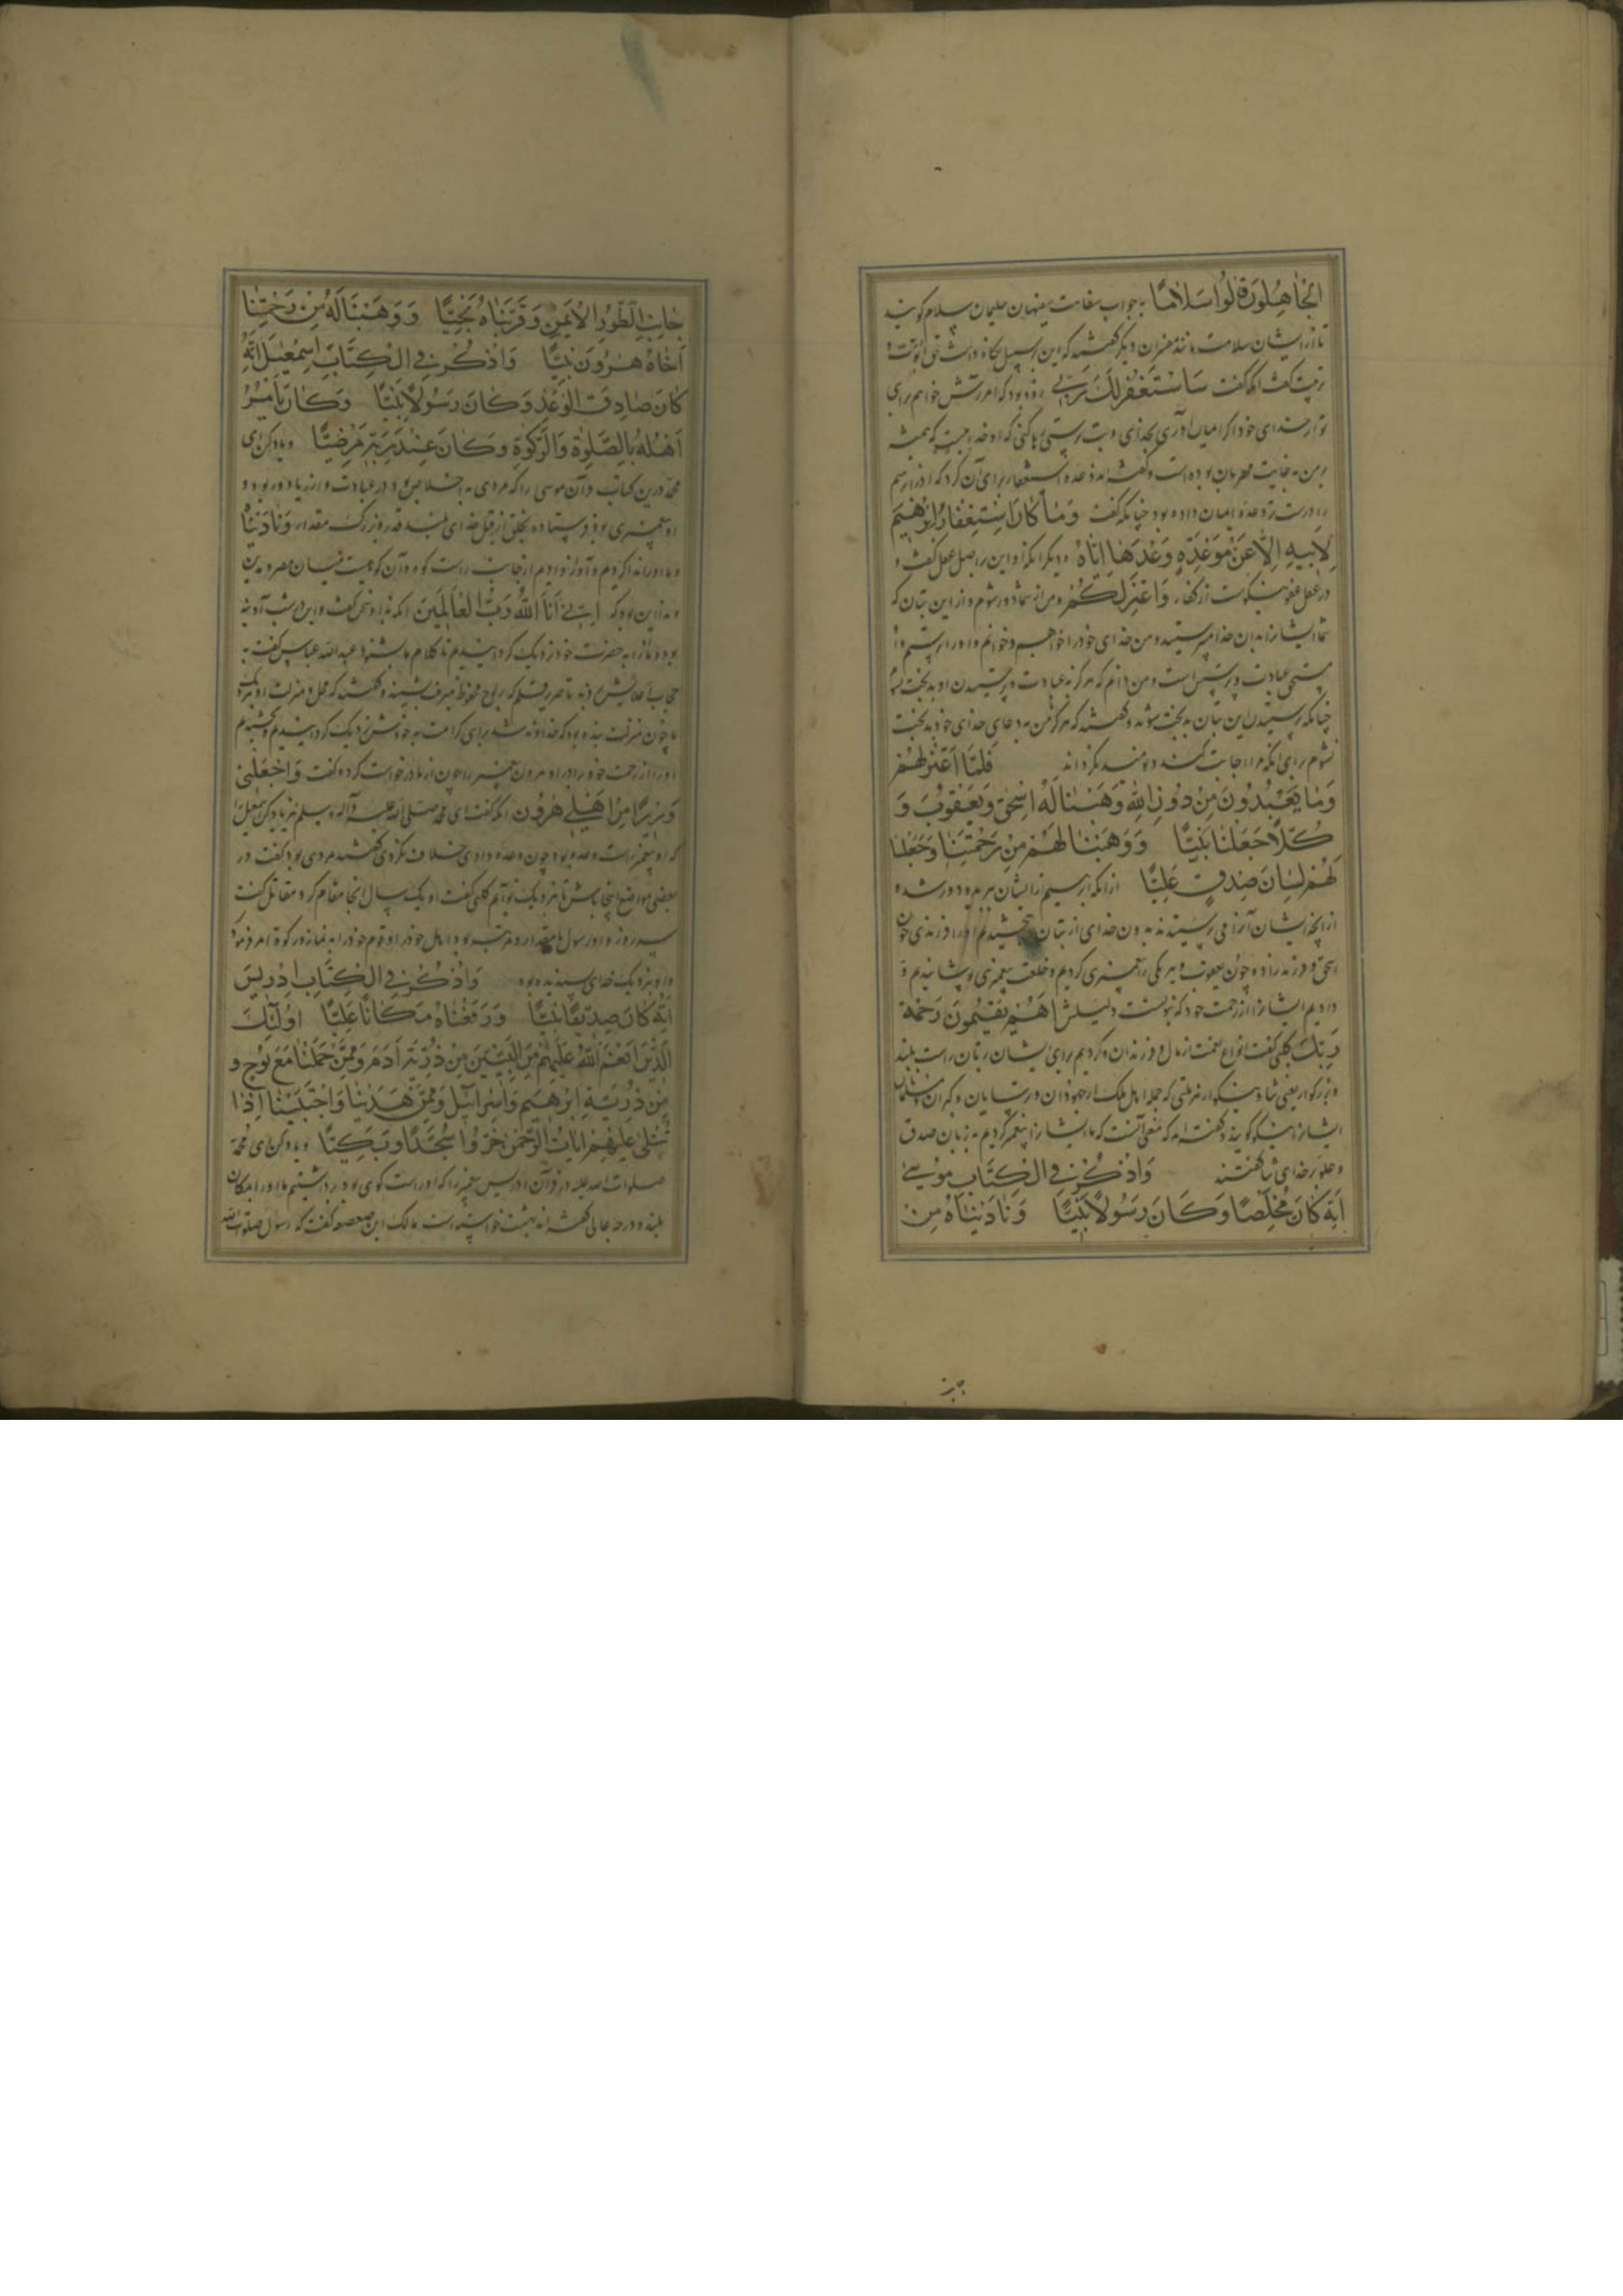 الجاهلون قالوا سلاما به جواب سفاهت سفیهان حلیمان سلام گویند
تا از ایشان سلامت مانند مفسران دیگر گفتند که این بر سبیل نگاه داشت حق ابوّت و
تربیت گفت آنکه گفت سَاَسْتَغْفِرُ لَكَ رَبّی زود بود که آمرزش خواهم برای
تو از خدای خود اگر ایمان آری بخدای و بت پرستی رها کنی که او خداییست که همیشه
بر من به غایت مهربان بوده است و گفته‌اند وعده استغفار برای آن کرد که آذر ابرهیم
را درست ترَ وعده ایمان داده بود چنانکه گفت وَمَا كَانَ اسْتِغْفَارُ اِبْرٰهِيمَ
لِاَبِيهِ اِلَّا عَنْ مَوْعِدَةٍ وَعَدَهَا اِيَّاهُ و دیگر آنکه او این را بر اصل عقل گفت و
در عقل عفو نیکوست از کفار وَاَعْتَزِلُكُمْ و من از شما دور شوم و از این بتان که
شما ایشان را بدان خدا می‌پرستید و من خدای خود را خواهم و خوانم و او را پرستم و او
مستحق عبادت و پرستش است و من دانم که هرگز به عبادت و پرستیدن او بدبخت نشوم
چنانکه پرستیدن این بتان بدبخت شوند و گفتند که هرگز من به دعای خدای خود بدبخت
نشوم برای آنکه مرا اجابت کند و نومید نگرداند فَلَمَّا اعْتَزَلَهُمْ
وَمَا يَعْبُدُونَ مِنْ دُونِ اللّٰهِ وَهَبْنَا لَهُ اِسْحٰقَ وَيَعْقُوبَ وَ
كُلًّا جَعَلْنَا نَبِيًّا وَوَهَبْنَا لَهُمْ مِنْ رَحْمَتِنَا وَجَعَلْنَا
لَهُمْ لِسَانَ صِدْقٍ عَلِيًّا از آنکه ابرهیم از ایشان ببرید و دور شد و
از آنچه ایشان آن را می پرستیدند بدون خدای از بتان بخشیدیم او را فرزندی چون
اسحق و فرزندزاده چون یعقوب و هر یکی را پیغمبری کردیم و خلعت پیغمبری پوشانیدیم و
دادیم ایشان را از رحمت خود که نبوتست دلیلش اَهُمْ يَقْسِمُونَ رَحْمَةَ
رَبِّكَ کلبی گفت انواع نعمت از مال و فرزندان و کردیم برای ایشان زبان راست بلند
و بزرگوار یعنی ثنا و نیکو در هر ملتی که جمله اهل ملک از جهودان و ترسایان و گبران و مسلمانان
ایشان را نیکو گویند و گفته‌اند که معنی آنست که ما ایشان را پیغمبر کردیم به زبان صدق
و علو بر خدای ثنا گفتند وَاذْكُرْ فِي الْكِتَابِ مُوسٰى
اِنَّهُ كَانَ مُخْلَصًا وَكَانَ رَسُولًا نَبِيًّا وَنَادَيْنَاهُ مِنْ
جَانِبِ الطُّورِ الْاَيْمَنِ وَقَرَّبْنَاهُ نَجِيًّا وَوَهَبْنَا لَهُ مِنْ رَحْمَتِنَا
اَخَاهُ هٰرُونَ نَبِيًّا وَاذْكُرْ فِي الْكِتَابِ اِسْمٰعِيلَ اِنَّهُ
كَانَ صَادِقَ الْوَعْدِ وَكَانَ رَسُولًا نَبِيًّا وَكَانَ يَاْمُرُ
اَهْلَهُ بِالصَّلٰوةِ وَالزَّكٰوةِ وَكَانَ عِنْدَ رَبِّهِ مَرْضِيًّا و یاد کن ای
محمد درین کتاب قرآن موسی را که مردی به اخلاص بود در عبادت و از ریا دور بود و
او پیغمبری بود فرستاده بخلق از قبل خدای بلند قدر و بزرگ مقدار وَنَادَيْنَاهُ
و ما او را ندا کردیم و آواز دادیم از جانب راست کوه و آن کوهیست میان مصر و مدین
و ندا این بود که اِنّی اَنَا اللّٰهُ رَبُّ الْعَالَمِينَ آنکه ندا و سخن گفت و این شب آدینه
بود و ما او را به حضرت خود نزدیک گردانیدیم تا کلام ما بشنود عبدالله عباس گفت به
حجاب اعلاش بردند تا صریر قلم که بر لوح محفوظ میرفت بشنید و گفتند که محل و منزلت او نزدیک
ما چون منزلت بنده بود که خداوندش برای کرامت به خودش نزدیک گرداند و بخشیدیم
او را از رحمت خود برادر او هرون پیغمبر را چون از ما درخواست کرد و گفت وَاجْعَلْ لِي
وَزِيرًا مِنْ اَهْلِي هٰرُونَ آنکه گفت ای محمد صلی الله علیه و آله و سلم نیز یاد کن اسمعیل را
که او پیغمبر راست وعده بود چون وعده دادی خلاف نکردی گفتند مردی بود گفت در
بعضی مواضع اینجا باش تا نزدیک تو آیم کلبی گفت او یک سال آنجا مقام کرد مقاتل گفت
سه روز و او رسول با مقدار و مرتبه بود و اهل خود را و قوم خود را به نماز و زکوة امر فرمود
و او نزدیک خدای پسندیده بود وَاذْكُرْ فِي الْكِتَابِ اِدْرِيسَ
اِنَّهُ كَانَ صِدِّيقًا نَبِيًّا وَرَفَعْنَاهُ مَكَانًا عَلِيًّا اُولٰٓئِكَ
الَّذِينَ اَنْعَمَ اللّٰهُ عَلَيْهِمْ مِنَ النَّبِيِّينَ مِنْ ذُرِّيَّةِ اٰدَمَ وَمِمَّنْ حَمَلْنَا مَعَ نُوحٍ وَ
مِنْ ذُرِّيَّةِ اِبْرٰهِيمَ وَاِسْرَآئِيلَ وَمِمَّنْ هَدَيْنَا وَاجْتَبَيْنَا اِذَا
تُتْلٰى عَلَيْهِمْ اٰيَاتُ الرَّحْمٰنِ خَرُّوا سُجَّدًا وَبُكِيًّا و یاد کن ای محمد
صلوات الله علیه در قرآن ادریس پیغمبر را که او راست گوی بود برداشتیم ما او را به مکان
بلند و درجه عالی گفته‌اند بهشت خواسته است مالک ابن صعصعه گفت که رسول صلوات الله